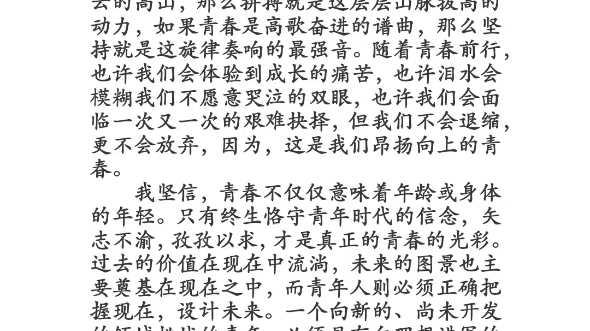 去的高山，那么拼搏就是这层层山脉拔高的
动力，如果青春是高歌奋进的谱曲，那么坚
持就是这旋律奏响的最强音。随着青春前行，
也许我们会体验到成长的痛苦，也许泪水会
模糊我们不愿意哭泣的双眼，也许我们会面
临一次又一次的艰难抉择，但我们不会退缩，
更不会放弃，因为，这是我们昂扬向上的青
春。
我坚信，青春不仅仅意味着年龄或身体
的年轻。只有终生恪守青年时代的信念，矢
志不渝，孜孜以求，才是真正的青春的光彩。
过去的价值在现在中流淌，未来的图景也主
要奠基在现在之中，而青年人则必须正确把
握现在，设计未来。一个向新的、尚未开发